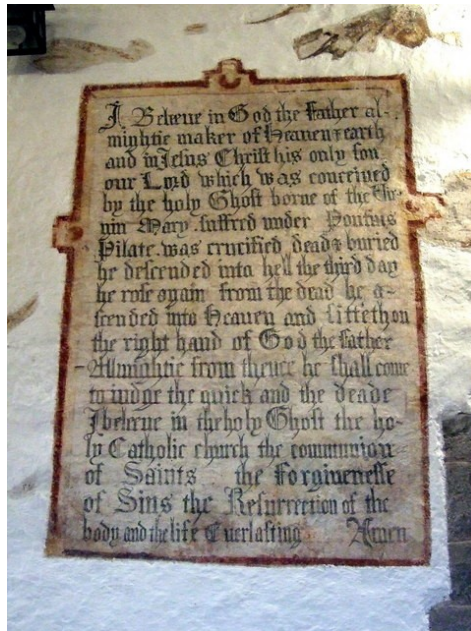 I Beleeue in God the Father al-
mightie maker of Heauen & earth
and in Jesus Christ his only son
our Lord which was conceiued
by the holy Ghost borne of the Vir-
gin Mary suffred under Pontius
Pilate was crucified dead & buried
he descended into hell the third day
he rose again from the dead he a-
scended into Heauen and sitteth on
the right hand of God the Father
Allmightie from thence he shall come
to iudge the quick and the deade
I beleeue in the holy Ghost the ho-
ly Catholic church the communion
of Saints the Forgiuenesse
of Sins the Resurrection of the
body and the life Euerlasting Amen